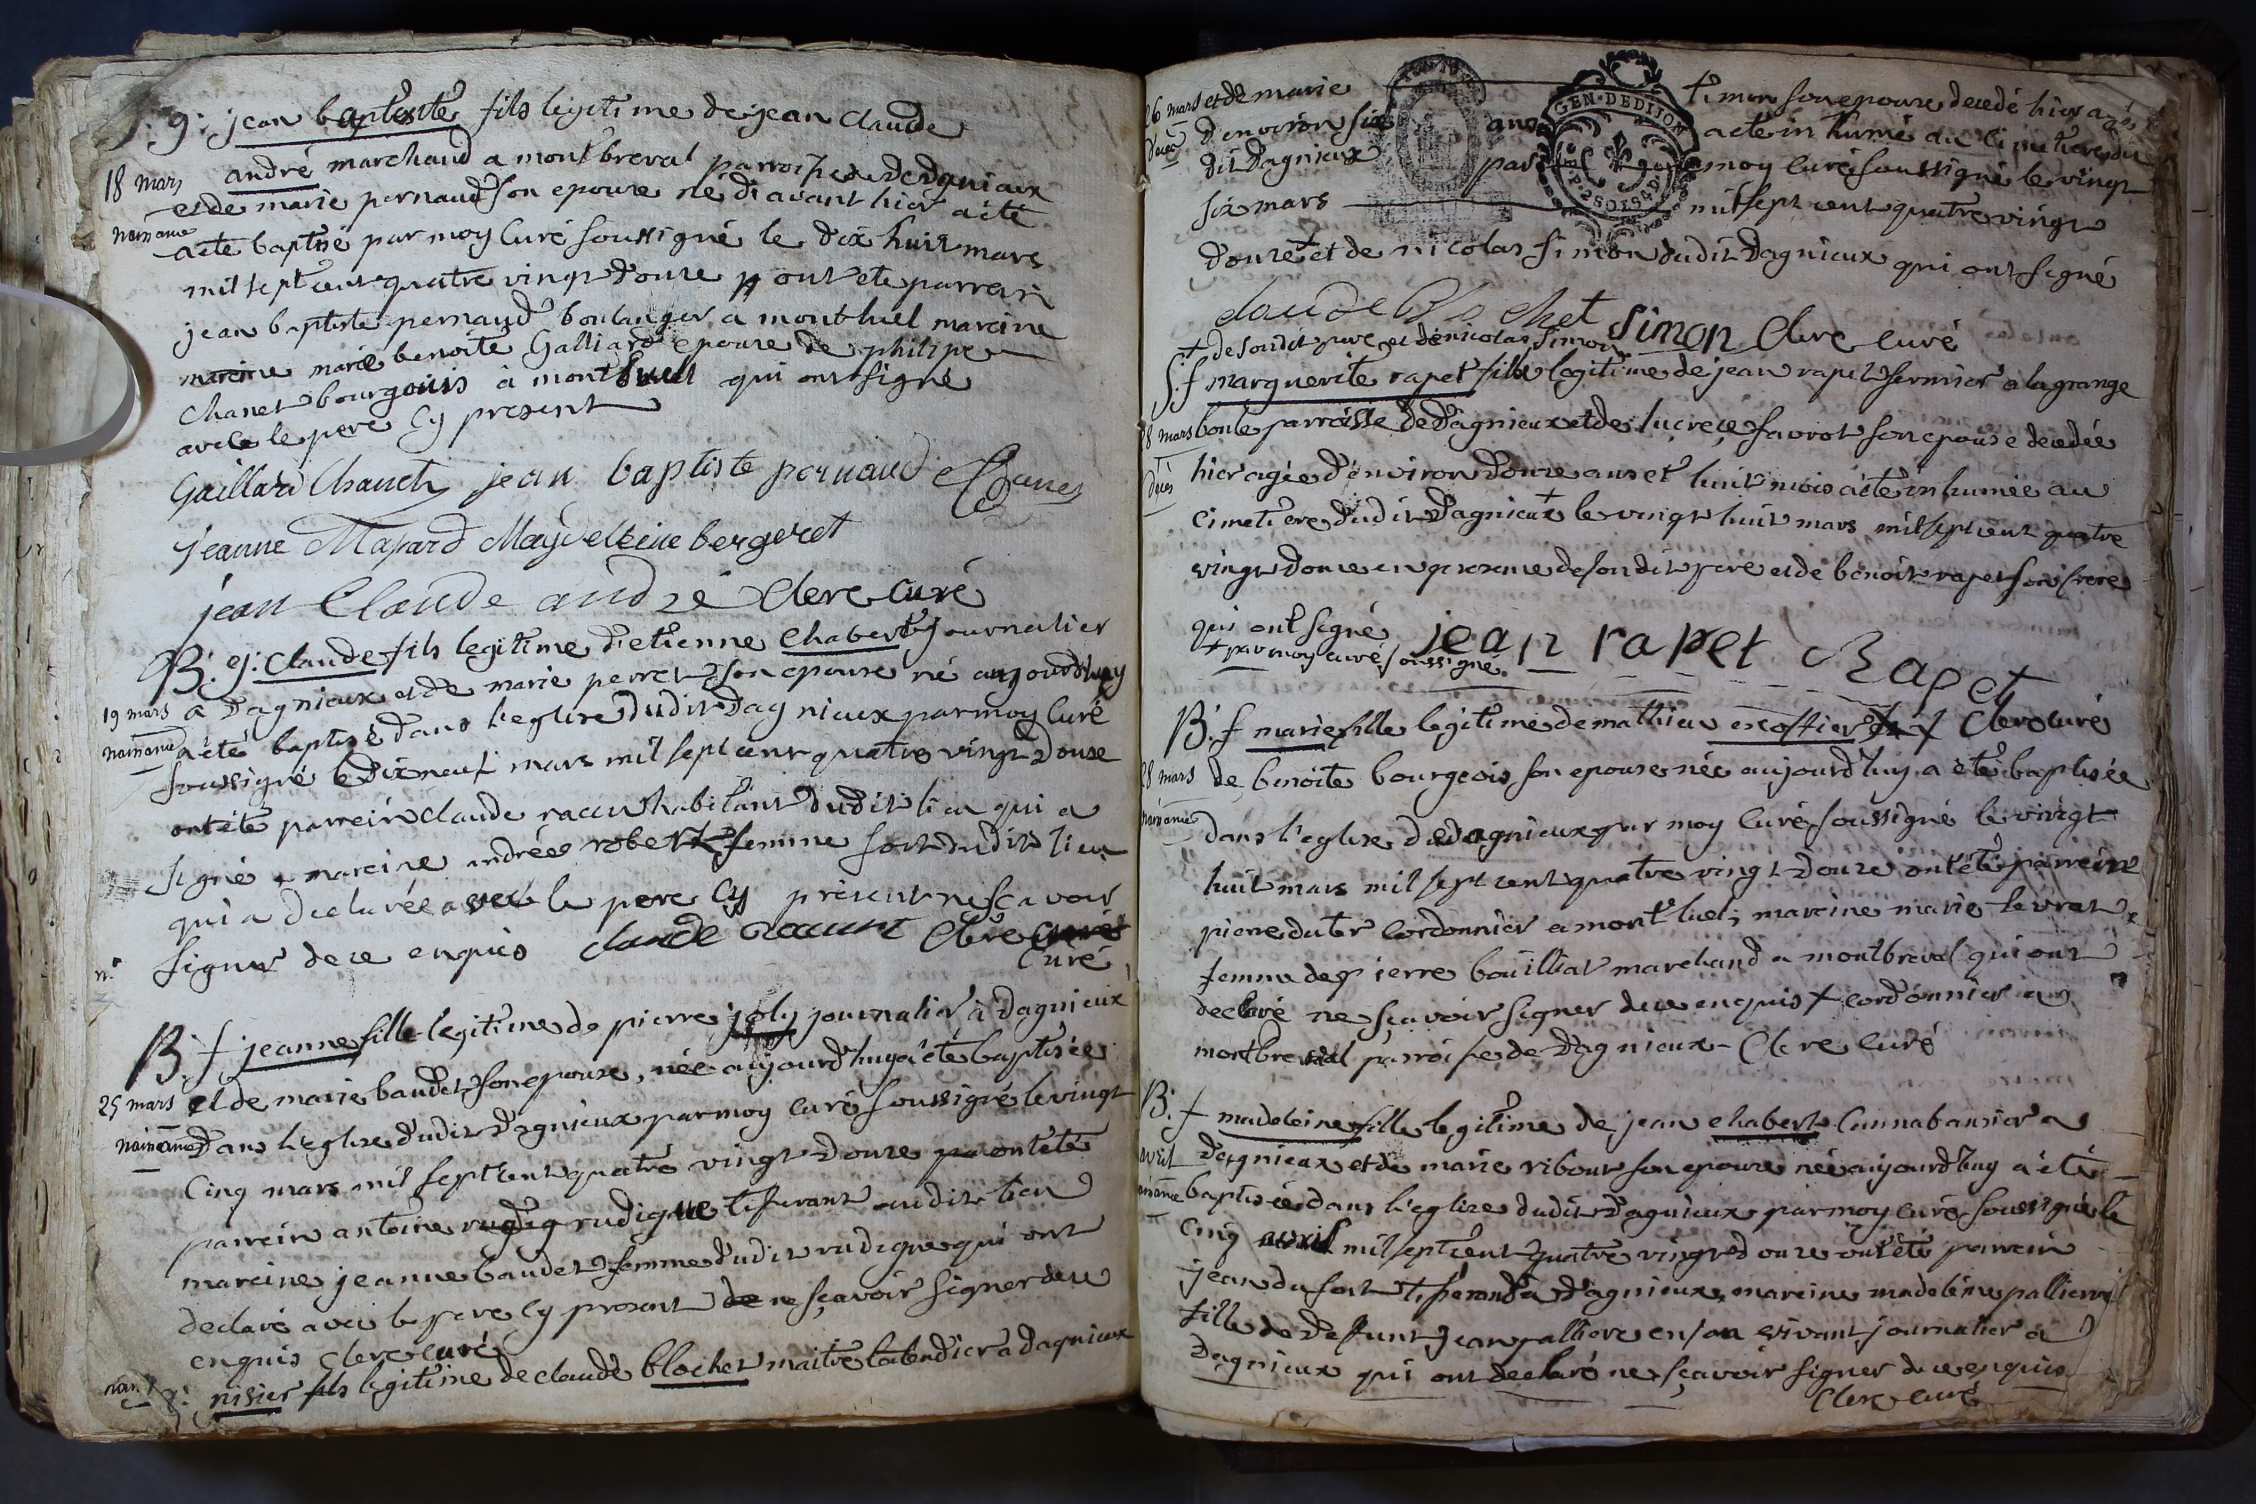 g: jean baptiste fils legitime de jean claude
18 mars andré marchand a montbreval parroisse de dagniaux
et de marie pernaud son epouse né d'avant hier a eté
naissance a eté baptisé par moy Curé soussigné le dix huit mars
mil sept cent quatre vingt douze y ont eté parrein
jean baptiste pernaud boulanger a montluel mareine
mareine marie benoite Galliard epouse de philipe
Chanet bourgeois à montluel qui ont signé
avec le pere Cy present
Gaillard Chanet jean baptiste pernaud Chanet
jeanne Magdeleine bergeret
jean Claude andré Clerc Curé
B. g: Claude fils legitime d'etienne Chabert journalier
19 mars a Dagnieux et de marie perret son epouse né aujourdhuy
naissance a eté baptisé dans l'eglise dudit Dagnieux par moy Curé
soussigné le dix neuf mars mil sept cent quatre vingt douze
ont eté parrein claude racur habitant dudit lieu qui a
signé mareine andrée robert femme fort dudit lieu
qui a declarée avec le pere Cy present ne sçavoir
signer de ce enquis claude racurt Clerc curé
Curé
B. f jeanne fille legitime de pierre joly journalier à Dagnieux
25 mars et de marie baudet son epouse, née aujourdhuy a eté baptisée
naissance dans l'eglise dudit Dagnieux par moy curé soussigné le vingt
Cinq mars mil sept cent quatre vingt douze ont eté
parrein antoine rudigue tisserant audit lieu
mareine jeanne baudet femme dudit rudigue qui ont
declaré avec le pere Cy present de ne sçavoir signer de ce
enquis Clerc curé
g: nisier fils legitime de claude blochet maitre à Dagnieux
26 mars et de marie simon son epouse decedé hier agés
deces d'environ six ans a eté inhumé au Cimetiere du
dit Dagnieux par moy Curé soussigné le vingt
six mars mil sept cent quatre vingt
douze + et de nicolas simon dudit Dagnieux qui ont signé
GEN. DE DIJON
claude Blochet Simon Clerc curé
+ de son dit pere et de nicolas simon
S. f marguerite rapet fille legitime de jean rapet fermier a la grange
28 mars boule parroisse de Dagnieux et de lucrece favrot son epouse decedée
décès hier agée d'environ douze ans et huit mois a eté inhumée au
Cimetiere dudit Dagnieux + le vingt huit mars mil sept cent quatre
vingt douze en presence de son dit pere et de benoit rapet son frere
qui ont signé jean rapet Rapet
+ par moy curé soussigné.
B. f marie fille legitime de mathieu escoffier et + Clerc curé
28 mars de benoite bourgeois son epouse née aujourd'huy a eté baptisée
naissance dans l'eglise de dagnieux par moy Curé soussigné le vingt
huit mars mil sept cent quatre vingt douze ont eté parrein
pierre cordonnier a montluel, mareine marie levrat
femme de pierre bouilliat marchand a montbreval qui ont
declaré ne sçavoir signer de ce enquis + cordonnier a
montbreval parroisse de Dagnieux - Clerc Curé
B. f madeleine fille legitime de jean chabert a
avril Dagnieux et de marie ribout son epouse née aujourd'huy a eté
naissance baptisée dans l'eglise dudit Dagnieux par moy curé soussigné le
Cinq avril mil sept cent quatre vingt douze ont eté parrein
jean du fort tisserand a Dagnieux, mareine madeleine palliere
fille de defunt jean palliere en son vivant journalier a
Dagnieux qui ont declaré ne sçavoir signer de ce enquis
Clerc curé